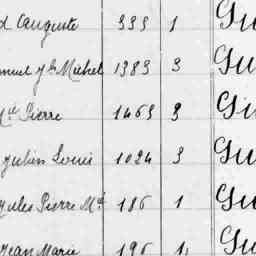 d Auguste 333 1 Gu
nuel fs Michel 1383 3 Gu
Md Pierre 1463 3 Gu
Julien Louis 1024 3 Gu
Jules Pierre Md 186 1 Gu
Jean Marie 196 1 Gu